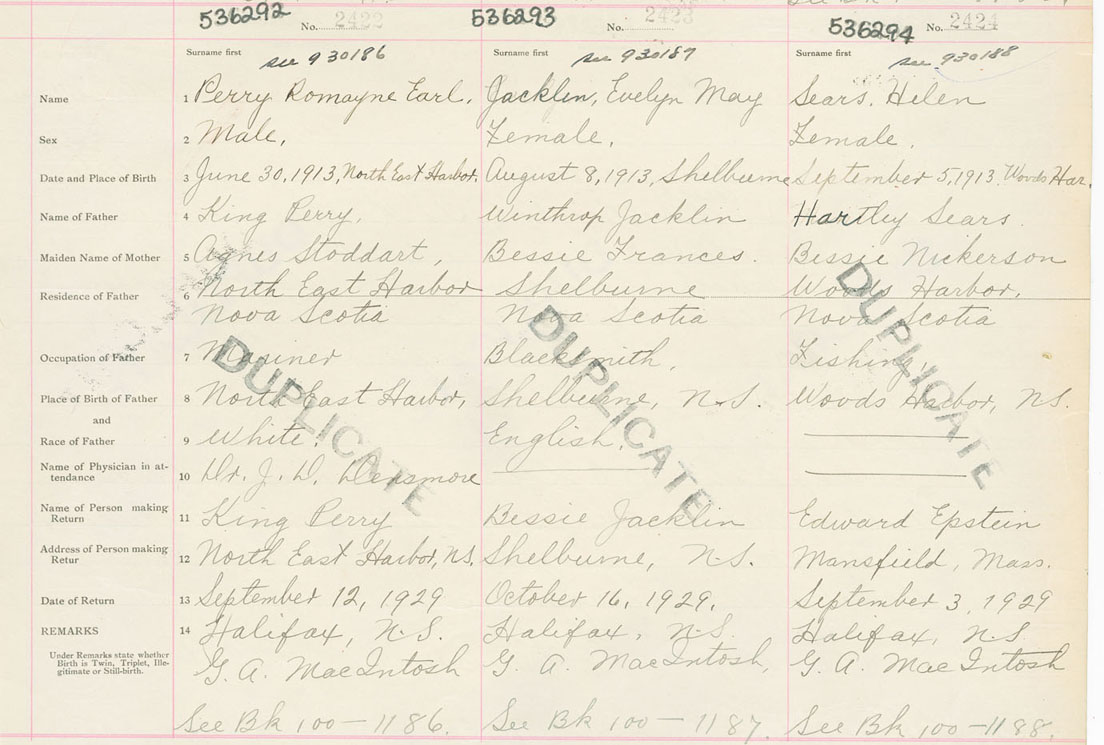 536292 No. 2422 536293 No. 2423 536294 No. 2424
Surname first Surname first Surname first
see 930186 see 930187 see 930188
Name 1 Perry Romayne Earl. Jacklin, Evelyn May Sears. Helen
Sex 2 Male. Female. Female.
Date and Place of Birth 3 June 30, 1913, North East Harbor. August 8, 1913, Shelburne September 5, 1913. Woods Har.
Name of Father 4 King Perry. Winthrop Jacklin Hartley Sears
Maiden Name of Mother 5 Agnes Stoddart, Bessie Frances. Bessie Nickerson
Residence of Father 6 North East Harbor Shelburne Woods Harbor.
Nova Scotia Nova Scotia Nova Scotia
Occupation of Father 7 Mariner Blacksmith. Fishing.
Place of Birth of Father 8 North East Harbor, Shelburne, N.S. Woods Harbor, NS.
and
Race of Father 9 White. English.
Name of Physician in at-
tendance 10 Dr. J. D. Densmore
Name of Person making
Return 11 King Perry Bessie Jacklin Edward Epstein
Address of Person making
Retur 12 North East Harbor, N.S. Shelburne, N.S. Mansfield, Mass.
Date of Return 13 September 12, 1929 October 16, 1929. September 3, 1929
REMARKS 14 Halifax, N.S. Halifax, N.S. Halifax, N.S.
Under Remarks state whether
Birth is Twin, Triplet, Ille-
gitimate or Still-birth.
G. A. MacIntosh G. A. MacIntosh, G. A. MacIntosh
See Bk 100 — 1186. See Bk 100 — 1187. See Bk 100 — 1188.
DUPLICATE DUPLICATE DUPLICATE